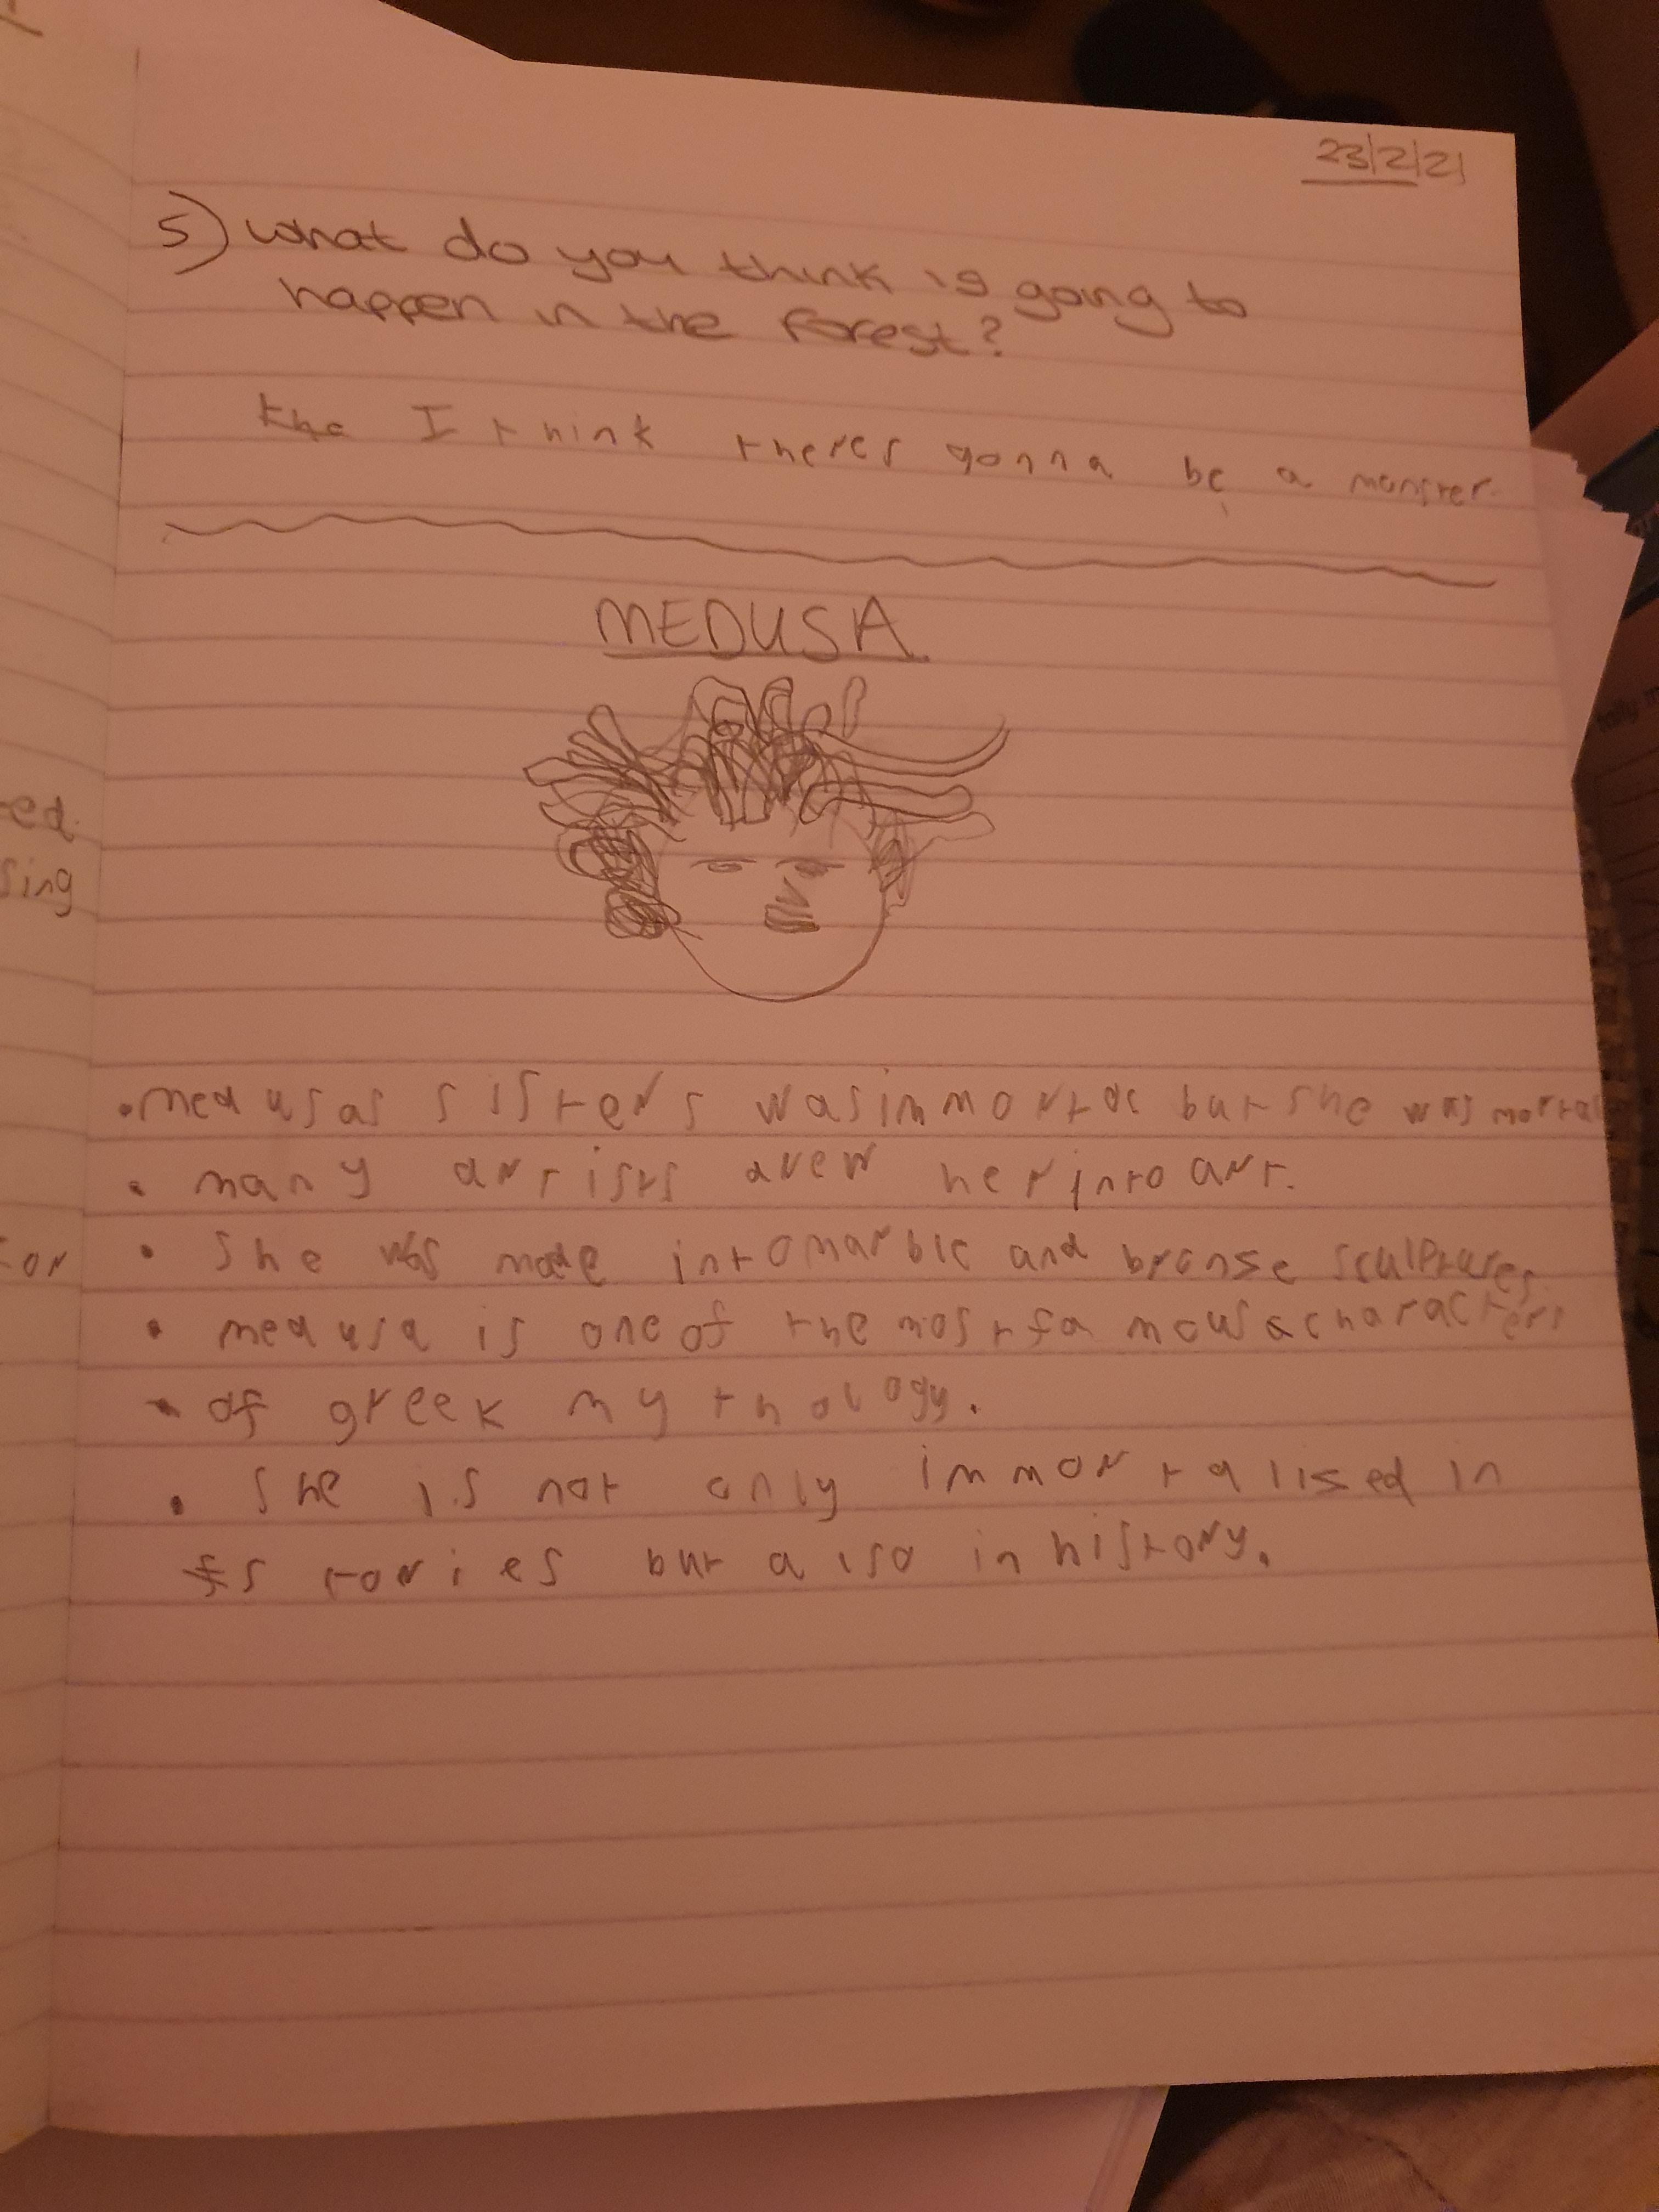 23/2/21
5) what do you think is going to
happen in the forest?
the I think theres gonna be a monster.
MEDUSA
• medusas sisters was immortal but she was mortal
• many artists drew her into art.
• She was made into marble and bronse sculptures
• medusa is one of the most famous characters
• of greek mythology.
• She is not only immortalised in
stories but also in history.
ed.
sing